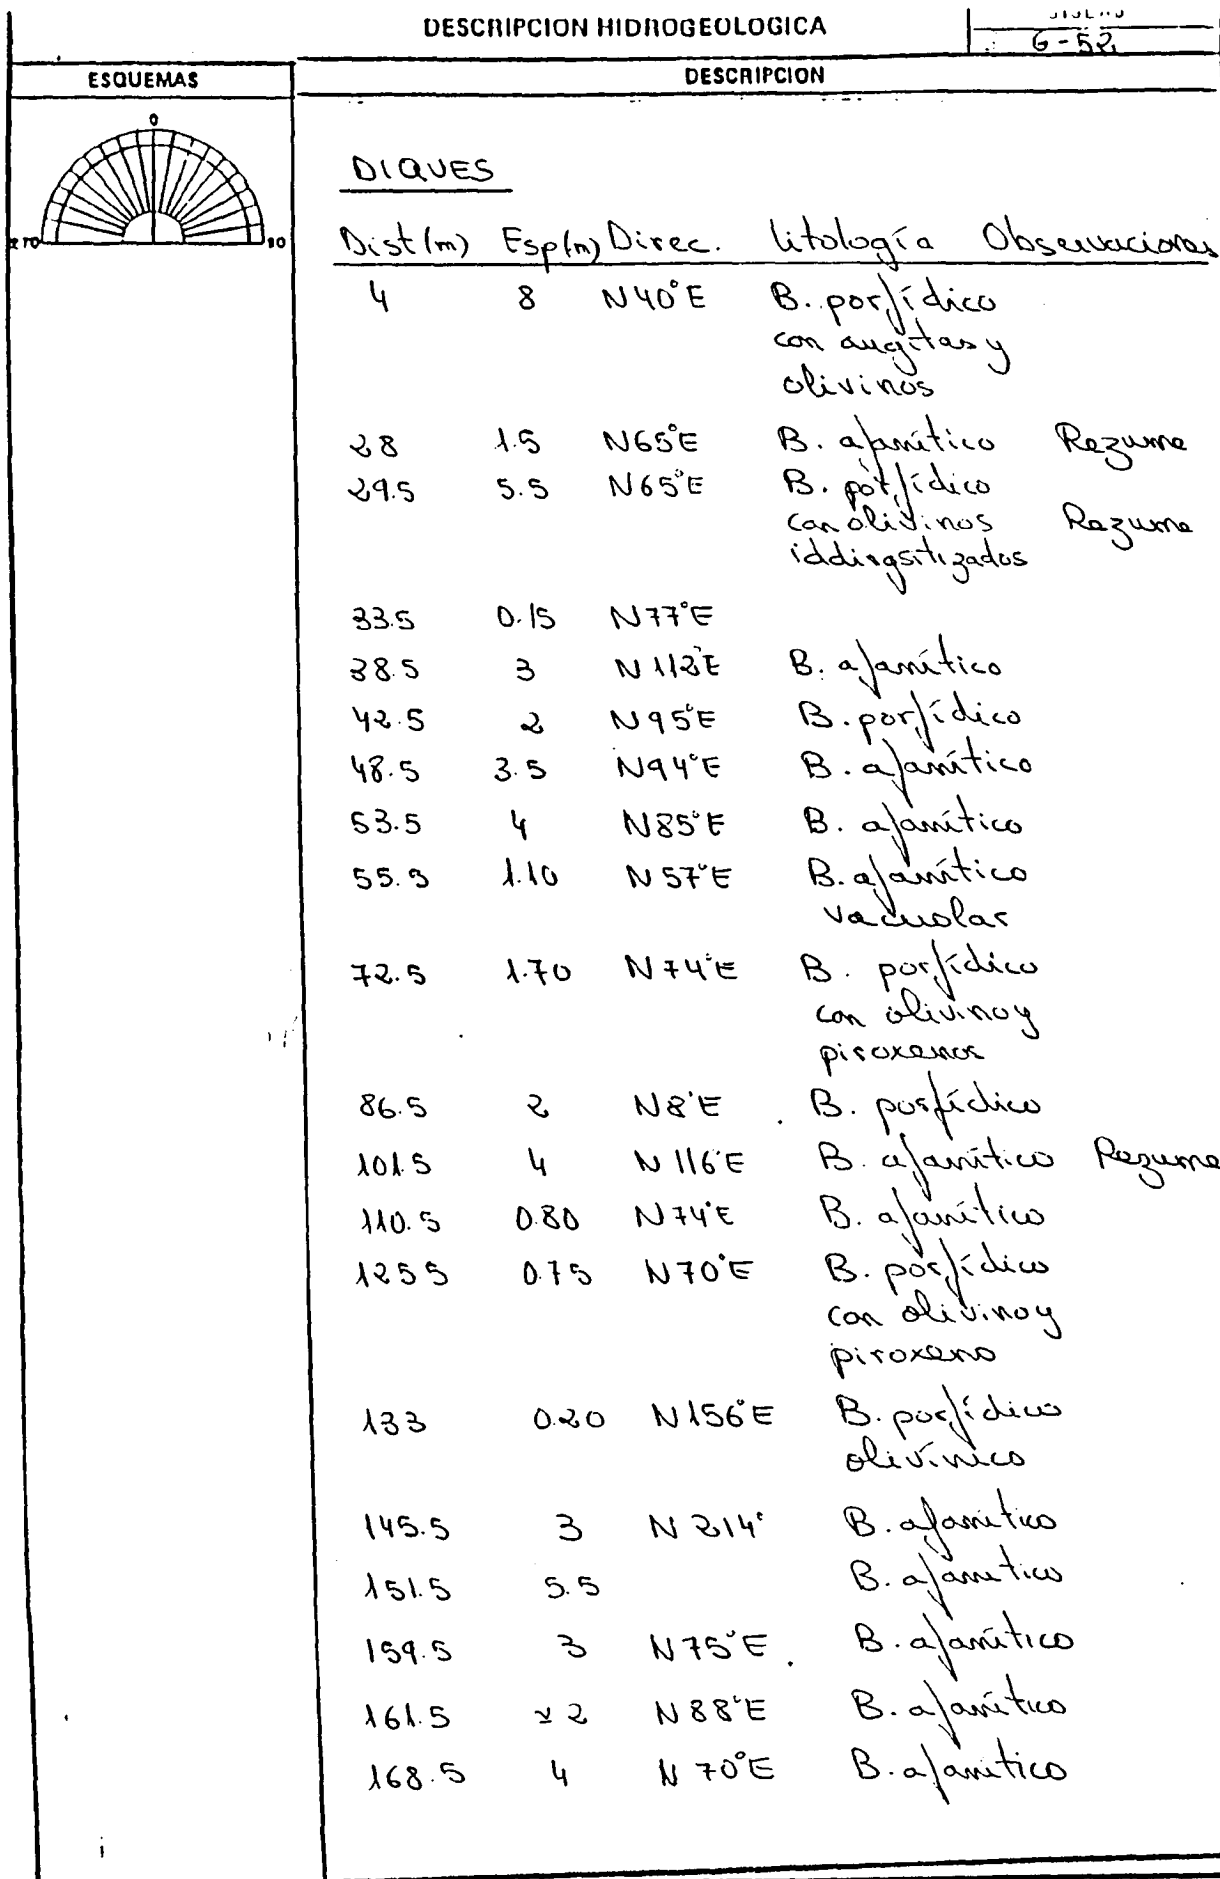 DESCRIPCION HIDROGEOLOGICA
G-52
ESQUEMAS
DESCRIPCION
0
270
90
DIQUES
Dist(m) Esp(m) Direc. Litología Observaciones
4 8 N40°E B. porfídico
con augitas y
olivinos
28 1.5 N65°E B. afanítico Rezume
29.5 5.5 N65°E B. porfídico
con olivinos Rezume
iddingsitizados
33.5 0.15 N77°E
38.5 3 N113°E B. afanítico
42.5 2 N95°E B. porfídico
48.5 3.5 N94°E B. afanítico
53.5 4 N85°E B. afanítico
55.5 1.10 N57°E B. afanítico
vacuolar
72.5 1.70 N74°E B. porfídico
con olivino y
piroxenos
86.5 2 N8°E B. porfídico
101.5 4 N116°E B. afanítico Rezume
110.5 0.80 N74°E B. afanítico
125.5 0.75 N70°E B. porfídico
con olivino y
piroxeno
133 0.20 N156°E B. porfídico
olivínico
145.5 3 N214° B. afanítico
151.5 5.5 B. afanítico
159.5 3 N75°E B. afanítico
161.5 ≃2 N88°E B. afanítico
168.5 4 N70°E B. afanítico